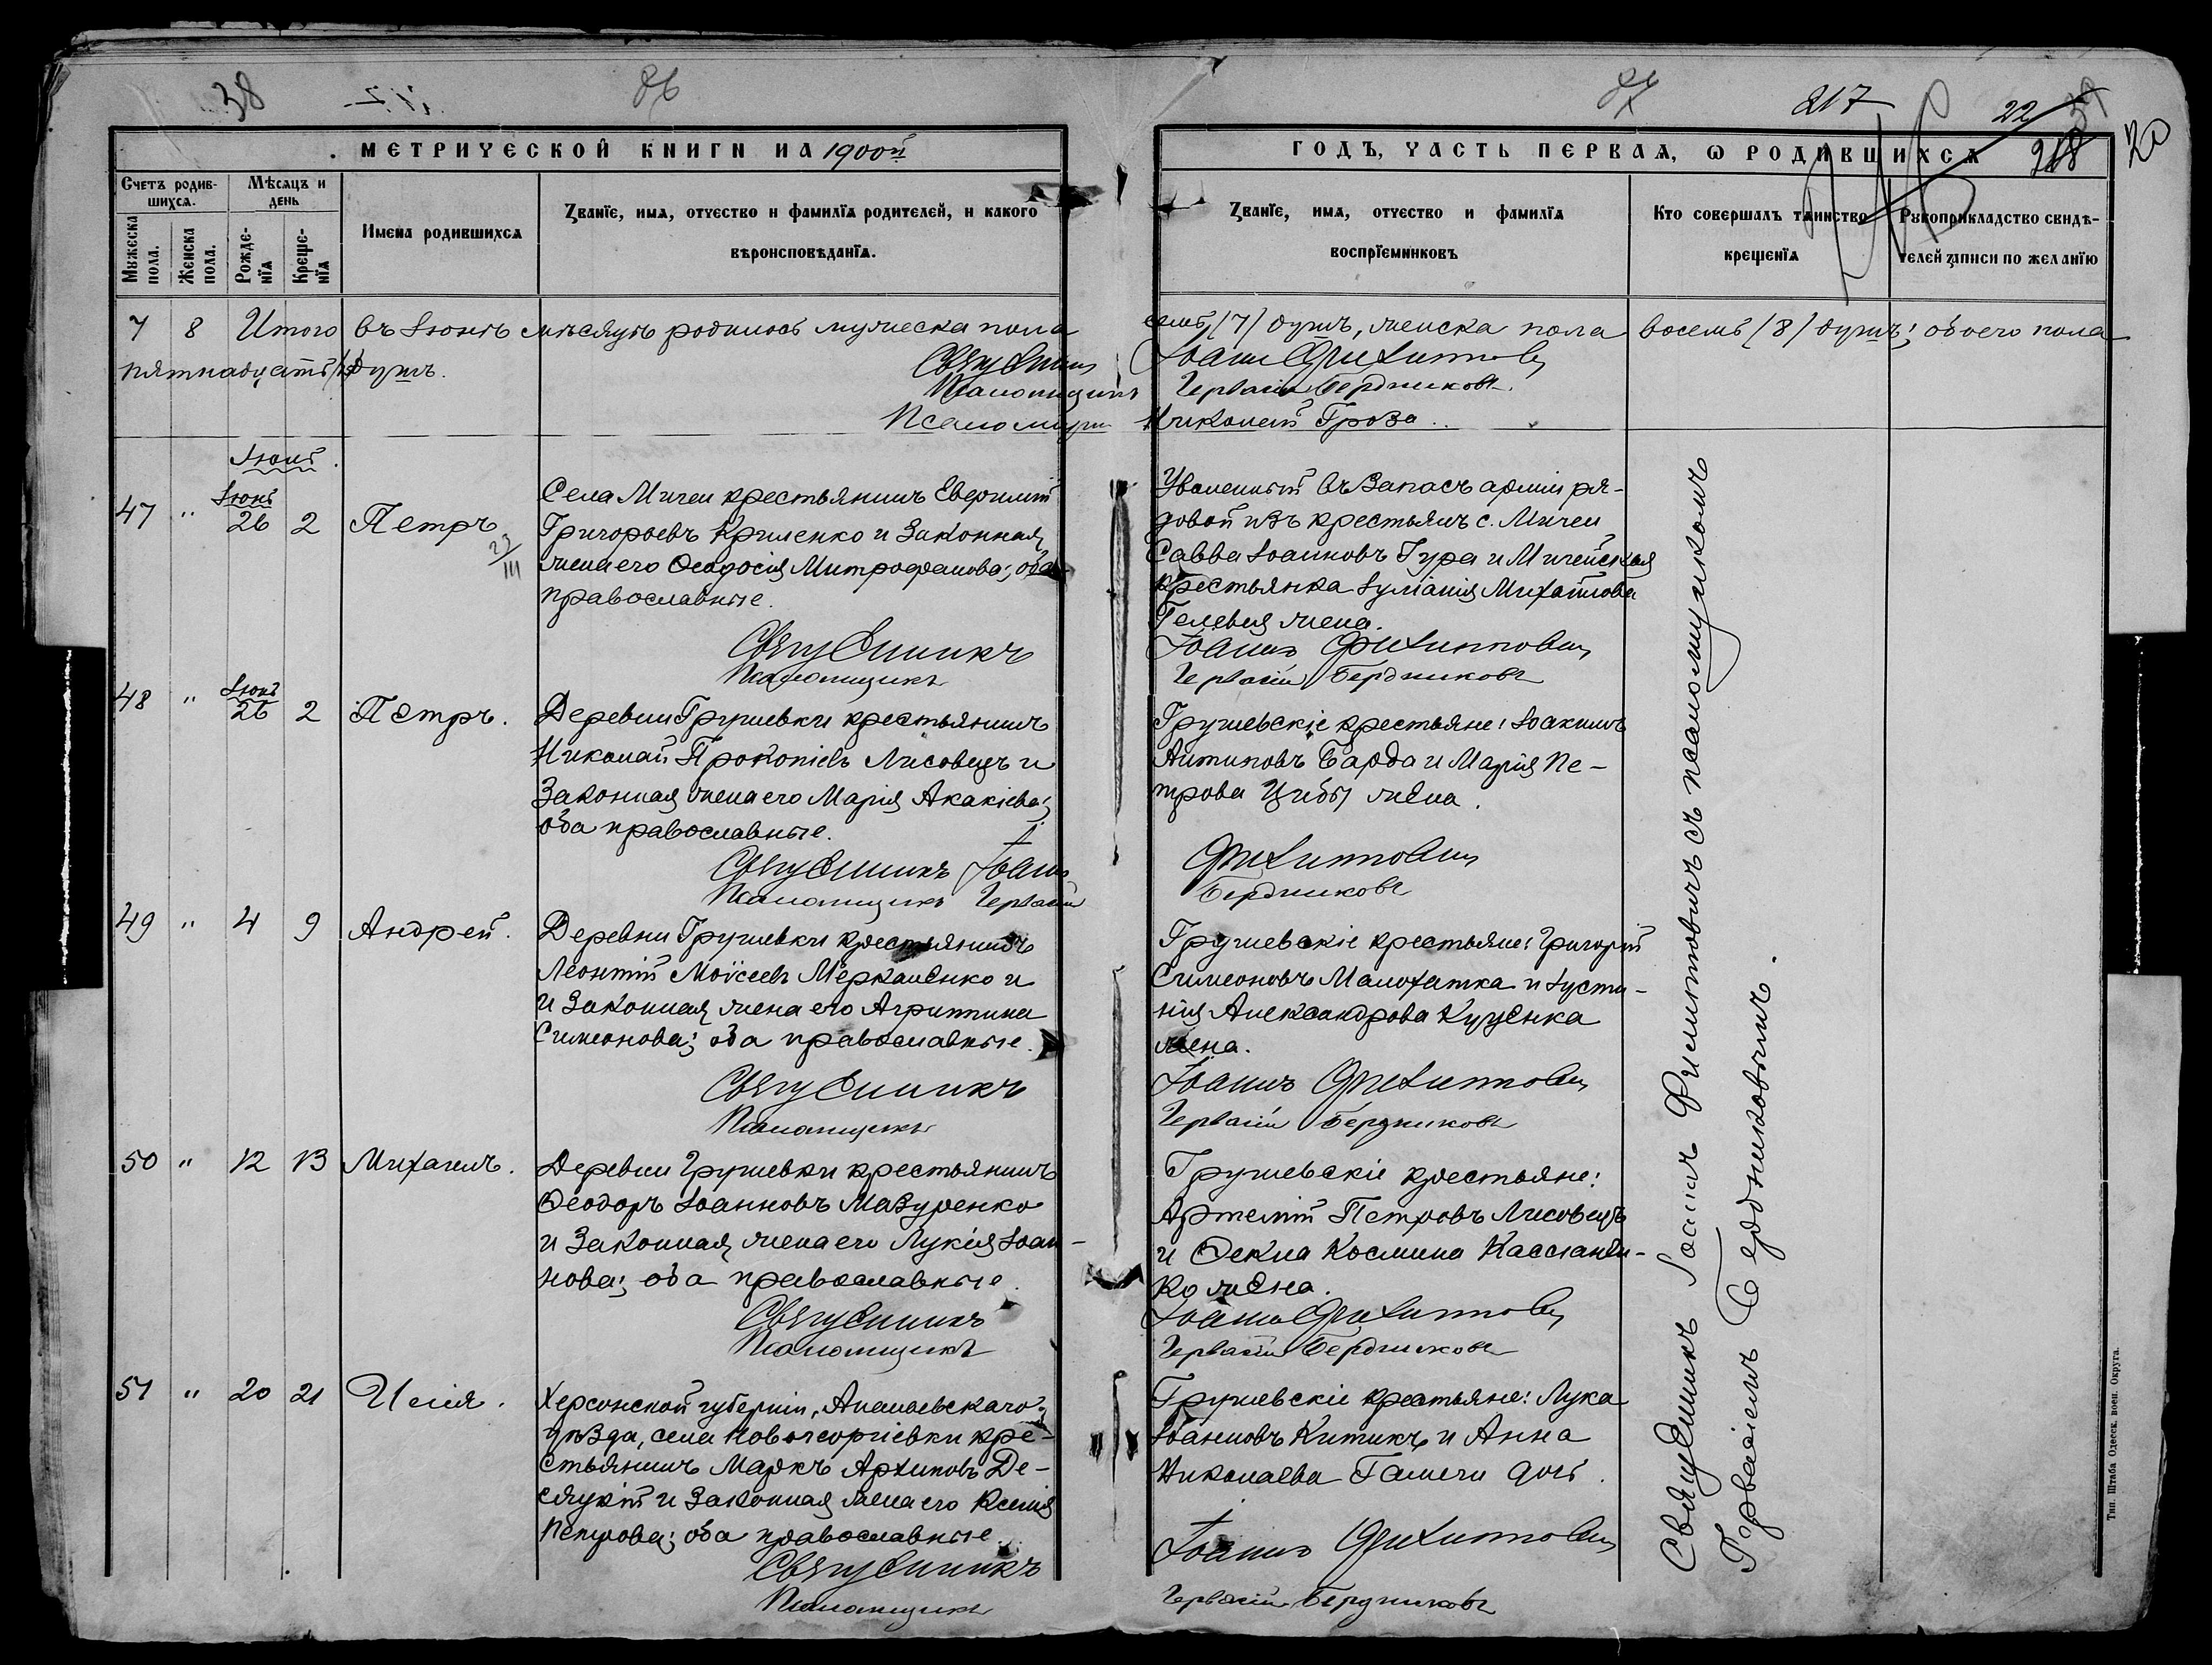 38
86
87
217
22
39
218
20
МЕТРИЧЕСКОЙ КНИГИ НА 1900й
ГОДЪ, ЧАСТЬ ПЕРВАЯ, Ѡ РОДИВШИХСЯ
Счетъ родив-
шихся.
Мѣсяцъ и
день
Мужеска
пола.
Женска
пола.
Рожде-
нїя
Креще-
нїя
Имена родившихся
Званїе, имя, отчество и фамилїя родителей, и какого
вѣроисповѣданїя.
Званїе, имя, отчество и фамилїя
воспрїемниковъ
Кто совершалъ таинство
крещенїя
Рукоприкладство свидѣ-
телей записи по желанїю
7 8 Итого въ Іюнѣ мѣсяцѣ родилось мужеска пола семь /7/ душъ, женска пола восемь /8/ душъ; обоего пола
пятнадцать /15/ душъ.
Священникъ Іоаннъ Филипповичъ
Псаломщикъ Гервасій Бердниковъ.
Псаломщикъ Гроза
Іюль.
47 " Іюнь 26 2 Петръ
23/III
Села Мигеи крестьянинъ Евфимій
Григорьевъ Криленко и законная
жена его Ѳеодосія Митрофанова; оба
православные.
Священникъ
Псаломщикъ
Уволенный въ запасъ арміи ря-
довой изъ крестьянъ с. Мигеи
Савва Іоанновъ Гура и Мигейская
крестьянка Іуліанія Михайлова
жена.
Іоаннъ Филипповичъ
Гервасій Бердниковъ
48 " Іюнь 26 2 Петръ.
Деревни Грушевки крестьянинъ
Николай Прокопіевъ Лисовецъ и
законная жена его Марія Акакіева;
оба православные.
Священникъ Іоаннъ
Псаломщикъ Гервасій
Грушевскіе крестьяне: Іоакимъ
Антиповъ Барда и Марія Пе-
трова Цибы жена.
Филипповичъ
Бердниковъ
49 " 4 9 Андрей.
Деревни Грушевки крестьянинъ
Леонтій Моѵсеевъ Меркаленко и
и законная жена его Агриппина
Симеонова; оба православные.
Священникъ
Псаломщикъ
Грушевскіе крестьяне: Григорій
Симеоновъ Малохатка и Іусти-
нія Александрова Куценка
жена.
Іоаннъ Филипповичъ
Гервасій Бердниковъ
50 " 12 13 Михаилъ.
Деревни Грушевки крестьянинъ
Ѳеодоръ Іоанновъ Мазуренко
и законная жена его Лукія Іоан-
нова; оба православные.
Священникъ
Псаломщикъ
Грушевскіе крестьяне:
Артемій Петровъ Лисовецъ
и Ѳекла Космина
жена.
Іоаннъ Филипповичъ
Гервасій Бердниковъ
51 " 20 21 Илія.
Херсонской губерніи, Ананьевскаго
уѣзда, села Новогеоргіевки кре-
стьянинъ Маркъ Архиповъ Де-
сяцкій и законная жена его Ксенія
Петрова; оба православные.
Священникъ
Псаломщикъ
Грушевскіе крестьяне: Лука
Іоанновъ Китикъ и Анна
Николаева дочь.
Іоаннъ Филипповичъ
Гервасій Бердниковъ
Священникъ Іоаннъ Филипповичъ съ псаломщикомъ
Герваciемъ Бердниковымъ.
Тип. Штаба Одесск. воен. Округа.